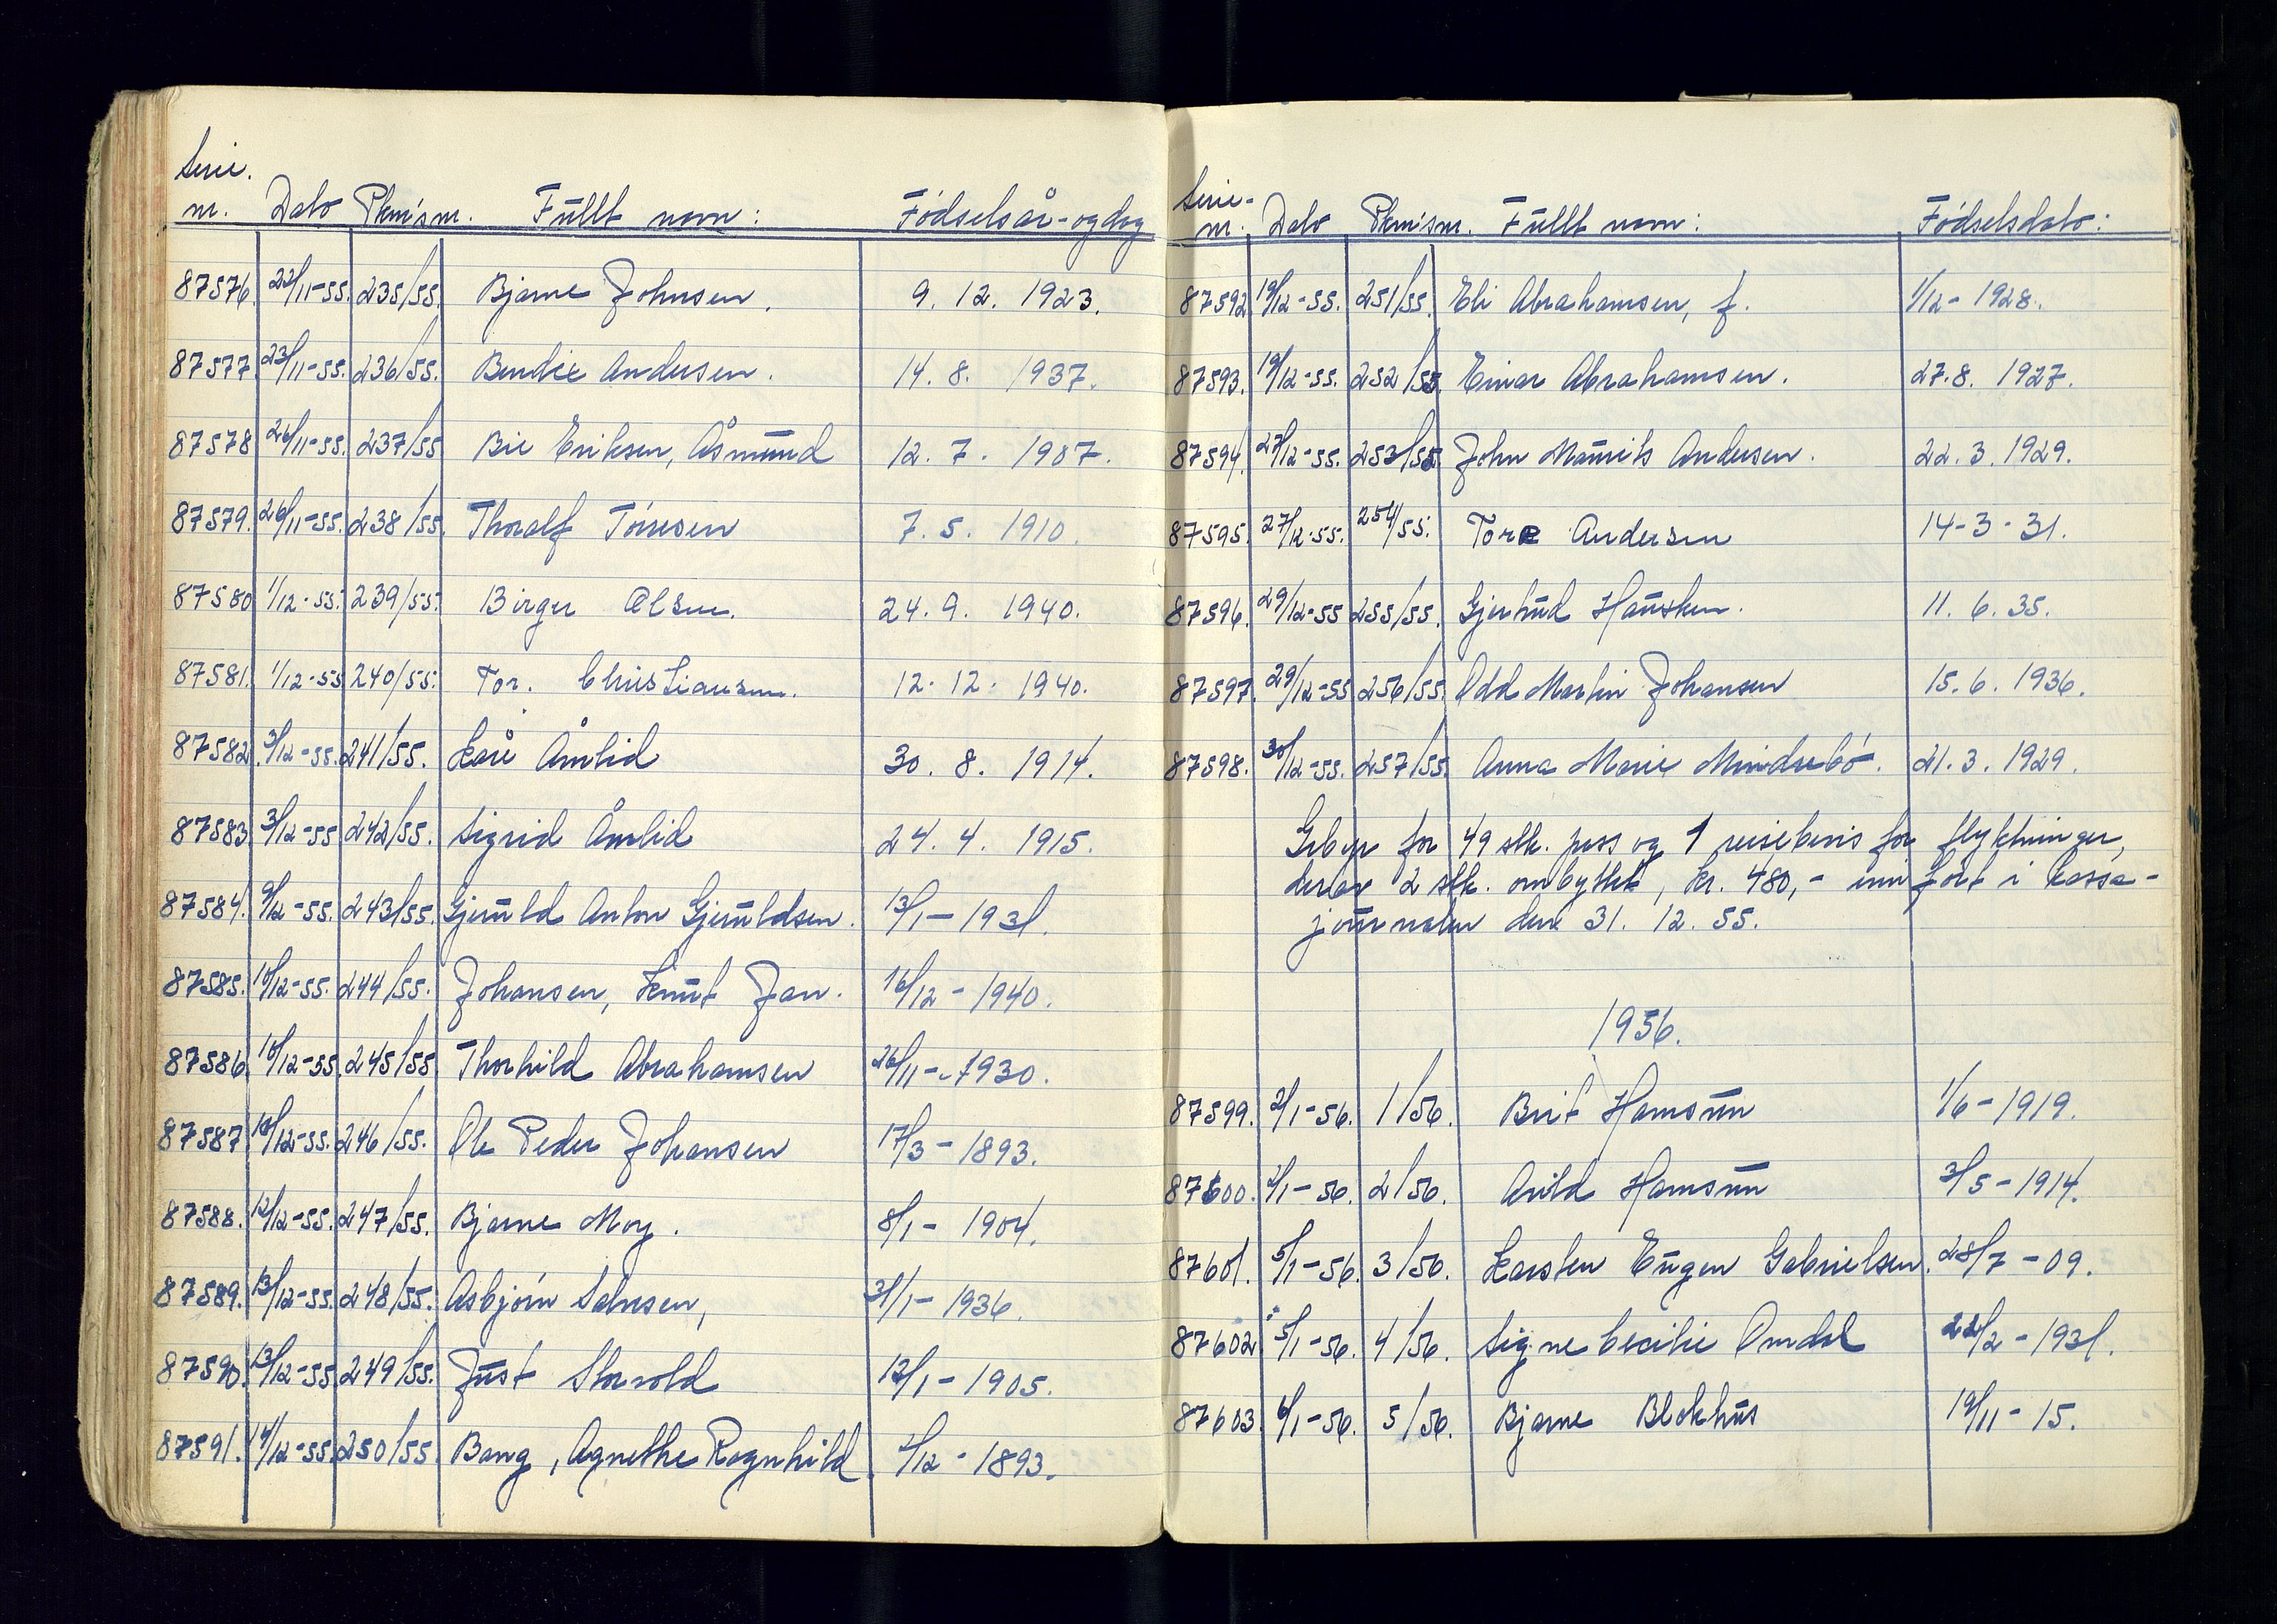 Serie.
nr. Dato Pkm'snr. Fullt navn: Fødselsår-og dag
87576. 22/11-55. 235/55. Bjarne Johnsen. 9. 12. 1923.
87577. 23/11-55. 236/55. Bendix Andersen. 14. 8. 1937.
87578 26/11-55. 237/55 Bie Eriksen, Åsmund 12. 7. 1907.
87579. 26/11-55. 238/55. Thoralf Tórresen 7. 5. 1910.
87580 1/12-55. 239/55. Birger Olsen. 24. 9. 1940.
87581. 1/12-55 240/55. Tor. Christiansen. 12. 12. 1940.
87582. 3/12-55. 241/55. Kåre Åmlid 30. 8. 1914.
87583 3/12-55 242/55. Sigrid Åmlid 24. 4. 1915.
87584. 9/12-55. 243/55. Gjeruld Anton Gjeruldsen. 13/1-1931.
87585. 10/12-55. 244/55. Johansen, Knut Jan. 16/12-1940.
87586. 10/12-55. 245/55 Thorhild Abrahamsen 26/11-1930.
87587 10/12-55. 246/55. Ole Peder Johansen 17/3-1893.
87588. 12/12-55. 247/55. Bjarne Moy. 8/1-1904.
87589. 13/12-55. 248/55. Asbjórn Salvesen, 31/1-1936.
87590. 13/12-55 249/55. Just Storvold 12/1-1905.
87591. 14/12-55 250/55 Bang, Agnethe Ragnhild. 2/12-1893.
Serie-
nr. Dato Pkm'snr. Fullt navn: Fódselsdato:
87592 19/12-55. 251/55. Eli Abrahamsen, f. 1/12-1928.
87593. 19/12-55. 252/55. Einar Abrahamsen. 27.8. 1927.
87594. 27/12-55. 253/55 John Mauritz Andersen. 22. 3. 1929.
87595. 27/12-55. 254/55. Tore Andersen 14-3-31.
87596. 29/12-55 255/55. Gjertrud Hausken. 11. 6. 35.
87597. 29/12-55 256/55. Odd Martin Johansen 15. 6. 1936.
87598. 30/12-55. 257/55. Anna Marie Mindrebó. 21. 3. 1929.
Gebyr for 49 stk. pass og 1 reisebevis for flyktninger,
derav 2 stk. ombyttet, kr. 480,- innfórt i kassa-
journalen den 31. 12. 55.
1956.
87599. 2/1-56. 1/56. Brit Hamsun 1/6-1919.
87600. 2/1-56. 2/56. Arild Hamsun 3/5-1914.
87601. 5/1-56. 3/56. Karsten Eugen Gabrielsen. 28/7-09.
87602 5/1-56. 4/56. Signe Cecilie Omdal 22/2-1931.
87603. 6/1-56. 5/56. Bjarne Blokhus 19/11-15.